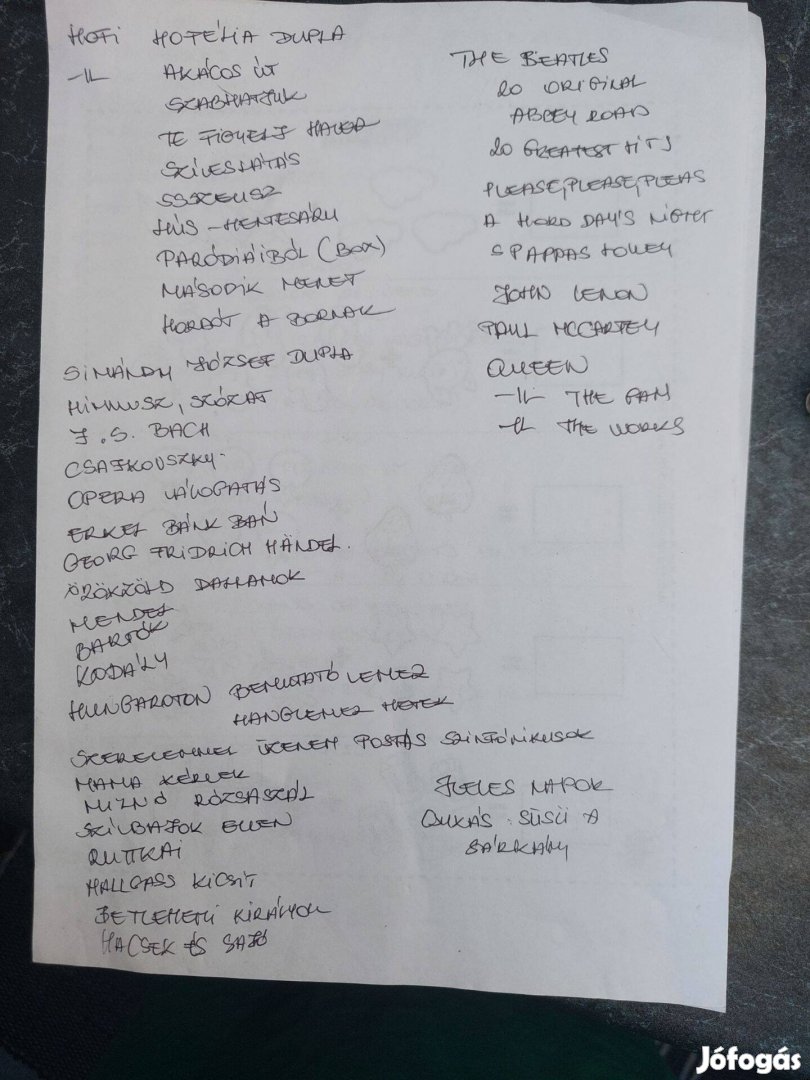 HOFI HOFÉLIA DUPLA
-II- AKÁCOS ÚT
SZABHATJUK
TE FIGYELJ HAVER
SZÍVESLÁTÁS
SSZEUSZ
HÚS-HENTESÁRU
PARÓDIÁIBÓL (BOX)
MÁSODIK MENET
HORDÓT A BORNAK
SIMÁNDY JÓZSEF DUPLA
HIMNUSZ, SZÓZAT
J.S. BACH
CSAJKOVSZKY.
OPERA VÁLOGATÁS
ERKEL BÁNK BÁN
GEORG FRIDRICH HÄNDEL.
ÖRÖKZÖLD DALLAMOK
MENDEL
BARTÓK
KODÁLY
HUNGAROTON BEMUTATÓ LEMEZ
HANGLEMEZ HETEK
SZERELEMMEL ÜZENEM POSTÁS SZINFÓNIKUSOK
MAMA KÉRLEK
MIZNÓ RÓZSASZÁL
SZÍVBAJOK ELLEN
RUTTKAI
HALLGASS KICSIT
BETLEHEMI KIRÁLYOK
HACSEK ÉS SAJÓ
THE BEATLES
20 ORIGINAL
ABBEY ROAD
20 GREATEST HITS
PLEASE, PLEASE, PLEAS
A HORD DAY'S NIGHT
SPAPPAS TOWEY
JOHN LENON
PAUL MCCARTEY
QUEEN
-II- THE GAM
-II- THE WORKS
JELES NAPOK
CUKÁS: SÜSÜ A
SÁRKÁNY
Jófogás